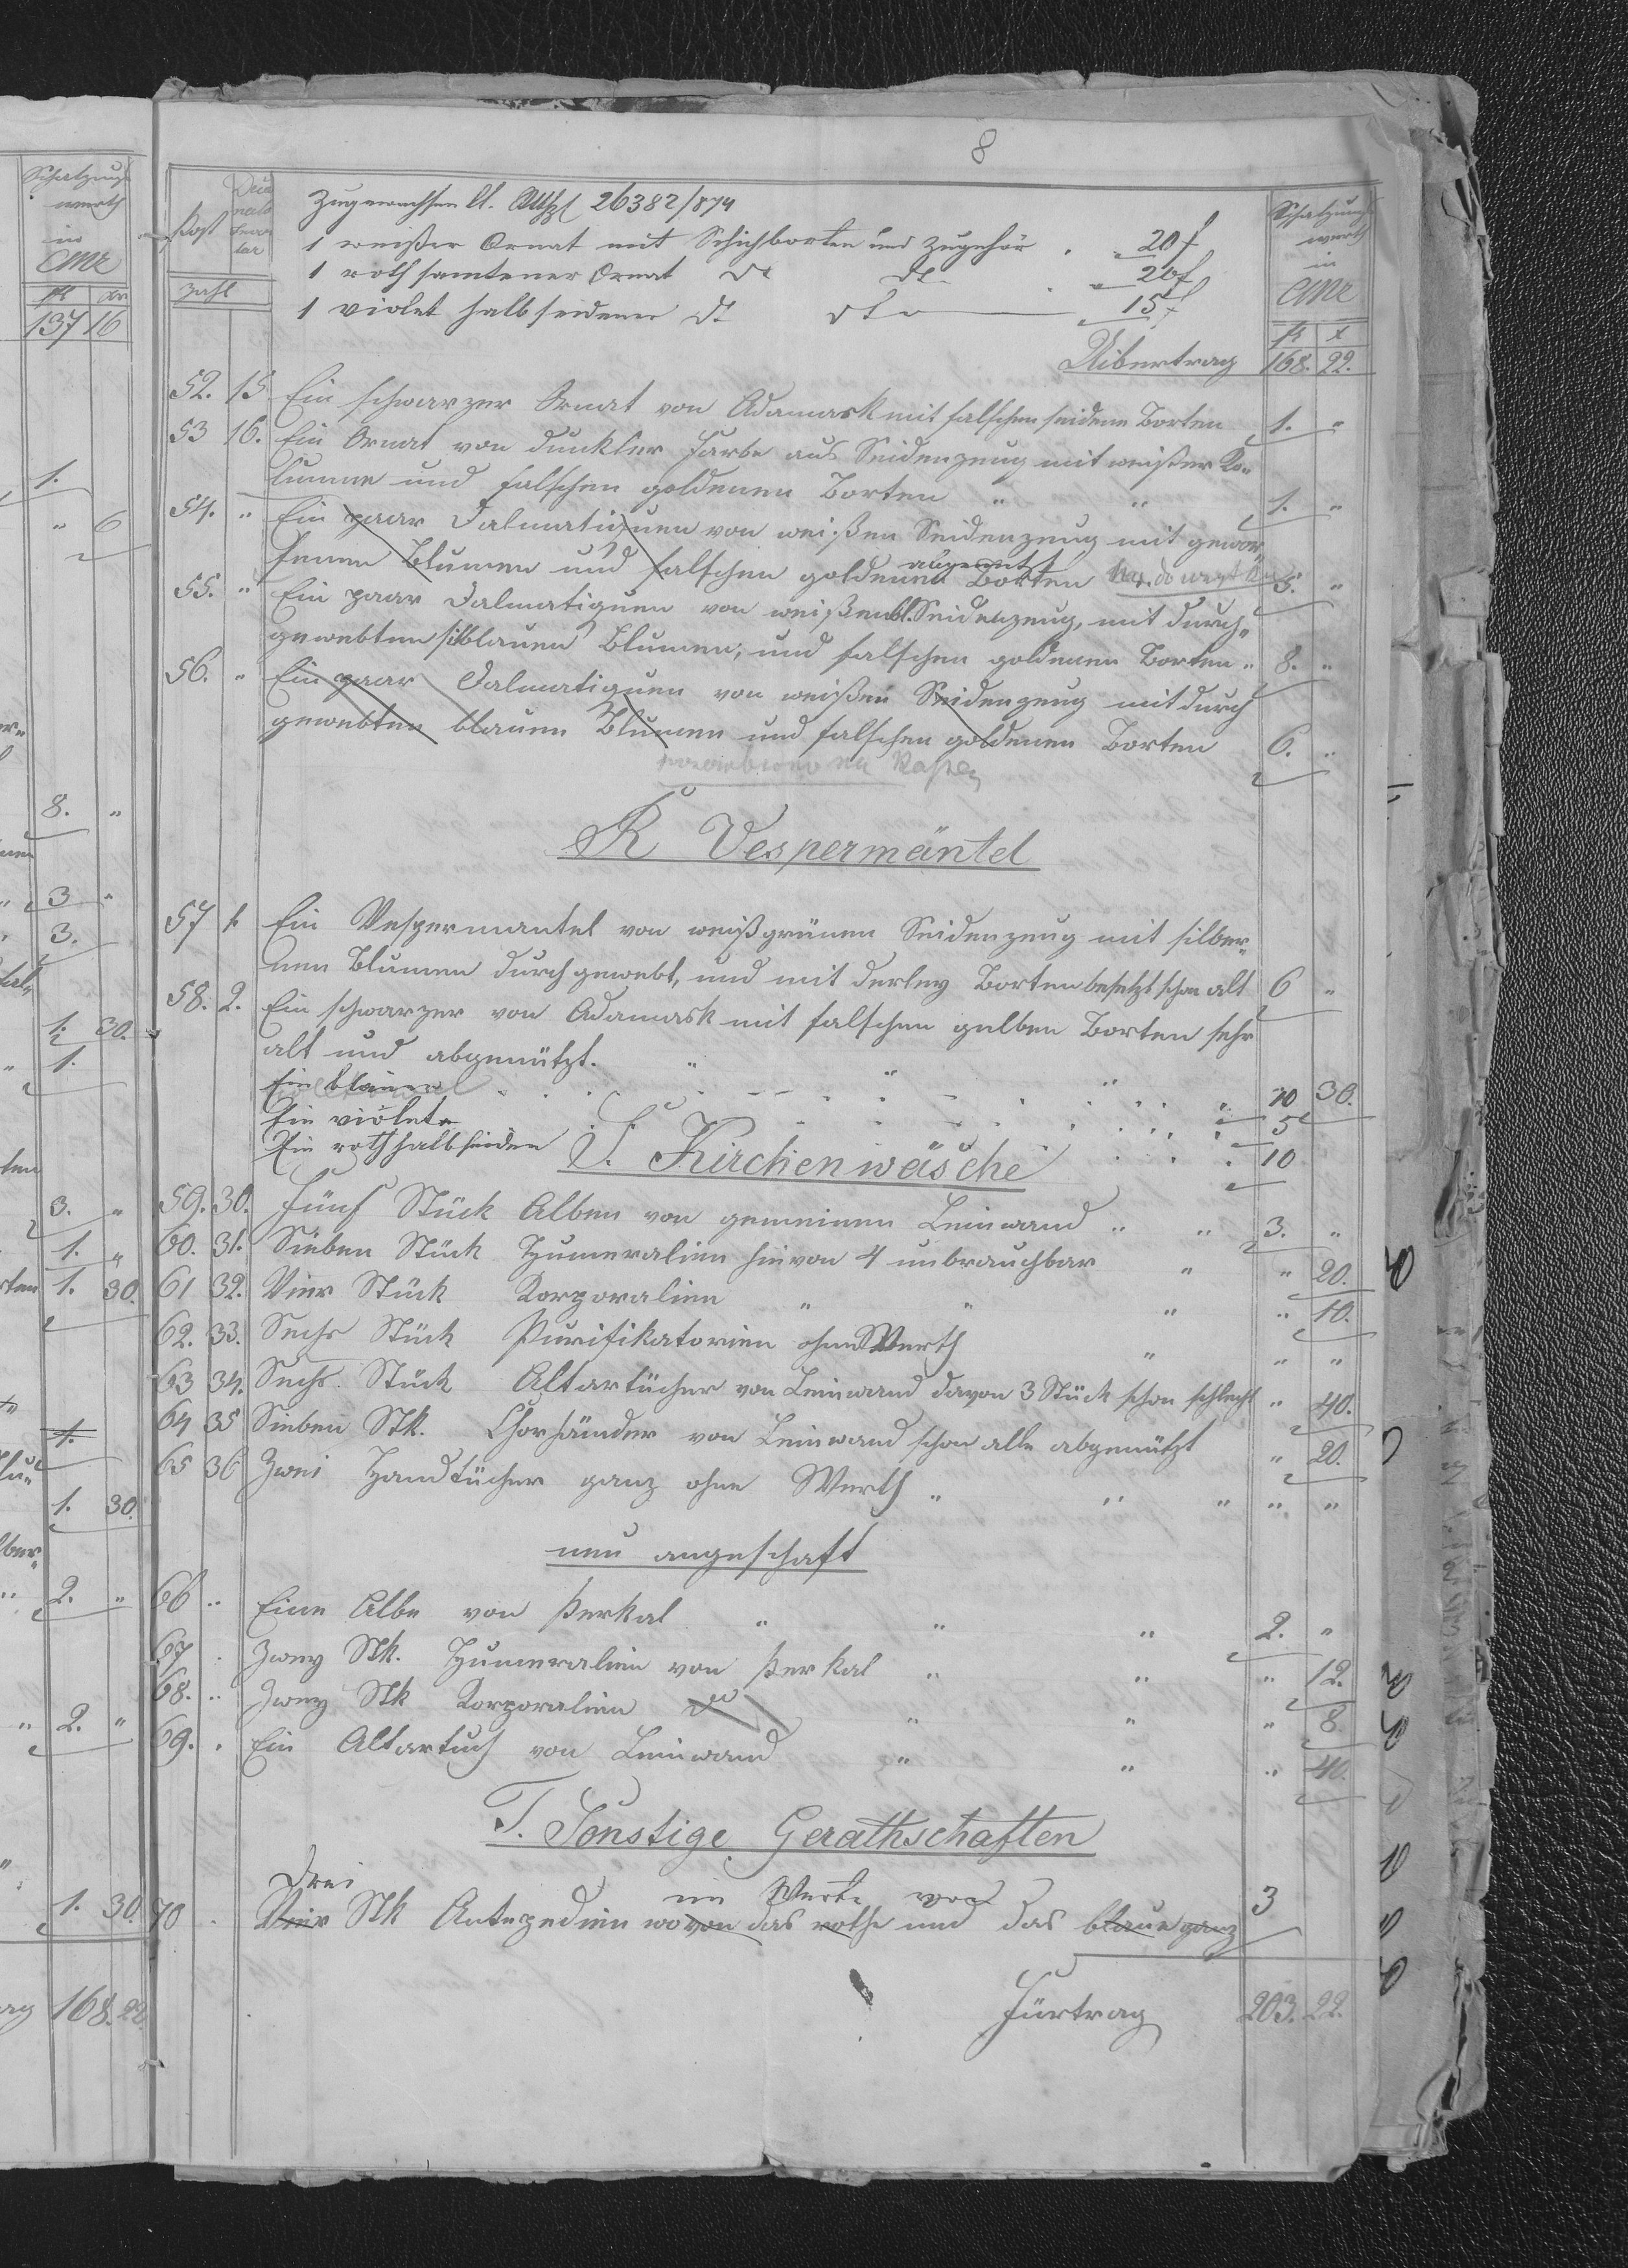 8
Schatzungs
werth
in
CMz
fl xr
137 16
1.
" 6
8. "
3 "
3.
1. 30.
1.
3. "
1. "
1. 30.
1.
1. 30.
2. "
2. "
1. 30
168. 22.
Post
Zahl
Schatzungs
werth
in
CMz
fl x
Zugewachsen lt. 26382/874
1 weißer Ornat mit Borten und Zugehör . " 20 f
1 roth samtener Ornat dt dt " 20 f
1 violet halbseidener dt dto " 15 f
Uibertrag 168. 22.
52. 15 Ein schwarzer Ornat von Adamask mit falschen seidene Borten 1. "
53 16. Ein Ornat von dunkler Farbe aus Seidenzeug mit weißer Ko-
lumne und falschen goldenen Borten " " 1. "
54. " Ein paar Dalmatiquen von weißen Seidenzeug mit gewor-
fenen Blumen und falschen goldenen abgenützt Borten 5. "
55. " Ein paar Dalmatiquen von weißenbl. Seidenzeug, mit durch-
gewebten silblauen Blumen, und falschen goldenen Borten " 8. "
56. " Ein paar Dalmatiquen von weißen Seidenzeug mit durch
gewebten blauen Blumen und falschen goldenen Borten 6. "
na
R Vespermäntel
57 1. Ein Vespermantel von weißgrünen Seidenzeug mit silber-
nen Blumen durchgewebt, und mit derley Borten besetzt schon alt 6 "
58. 2. Ein schwarzer von Adamask mit falschen gelben Borten sehr
alt und abgenützt. " " " " 30.
Ein blauer 10
Ein violete 5
Ein roth halbseiden 10
S. Kirchenwäsche
59. 30. Fünf Stück Alben von gemeinen Leinwand " " 3. "
60. 31. Sieben Stück Humeralien hievon 4 unbrauchbar " " 20.
61 32. Vier Stück Korporalien " " " " 10.
62. 33. Sechs Stück Purifikatorien ohne Werth " " "
63 34. Sechs Stück Altartücher von Leinwand davon 3 Stück schon schlecht " 40.
64 35 Sieben Stk. Chorhämder von Leinwand schon alle abgenützt " 20.
65 36 Zwei Handtücher ganz ohne Werth " " " " "
neu angeschaft
66 " Eine Albe von Perkal " " " 2. "
67 " Zwey Stk. Humeralien von Perkal " " " 12.
68. " Zwey Stk Korporalien do " " " 8.
69. " Ein Altartuch von Leinwand " " " 40.
T. Sonstige Gerathschaften
Drei im Werte von 3
70 Vier Stk Antependien wovon das rothe und das blaue ganz
Fürtrag 203. 22.